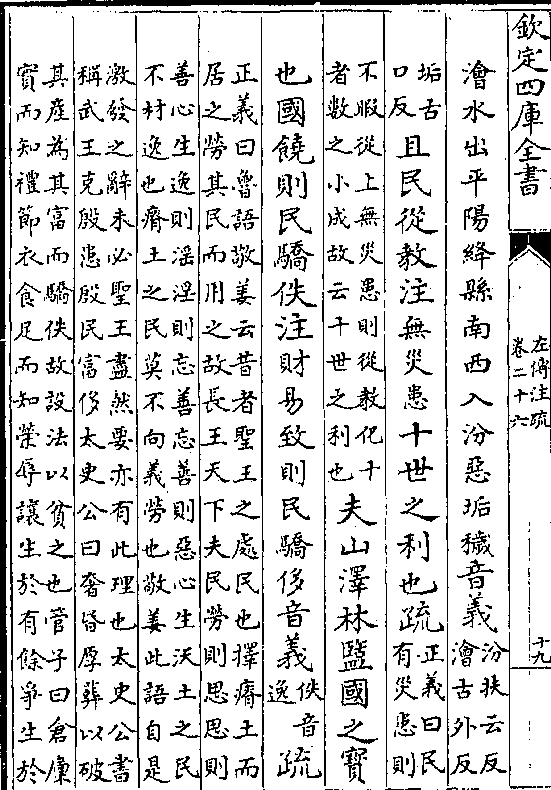 欽定四庫全書
左傳注疏
卷二十六
十九
澮水出平陽絳縣南西入汾惡垢穢音義汾扶云反
澮古外反
垢古
口反且民從教注無災患十世之利也疏正義曰民
有災患則
不暇從上無災患則從教化十
者數之小成故云十世之利也夫山澤林鹽國之寶
也國饒則民驕佚注財易致則民驕侈音義佚音
逸疏
正義曰魯語敬姜云昔者聖王之處民也擇瘠土而
居之勞其民而用之故長王天下夫民勞則思思則
善心生逸則淫淫則忘善忘善則惡心生沃土之民
不材逸也瘠土之民莫不向義勞也敬姜此語自是
激發之辭未必聖王盡然要亦有此理也太史公書
稱武王克殷患殷民富侈太史公曰奢昏厚葬以破
其産為其富而驕佚故設法以貧之也管子曰倉廩
實而知禮節衣食足而知榮辱讓生於有餘爭生於